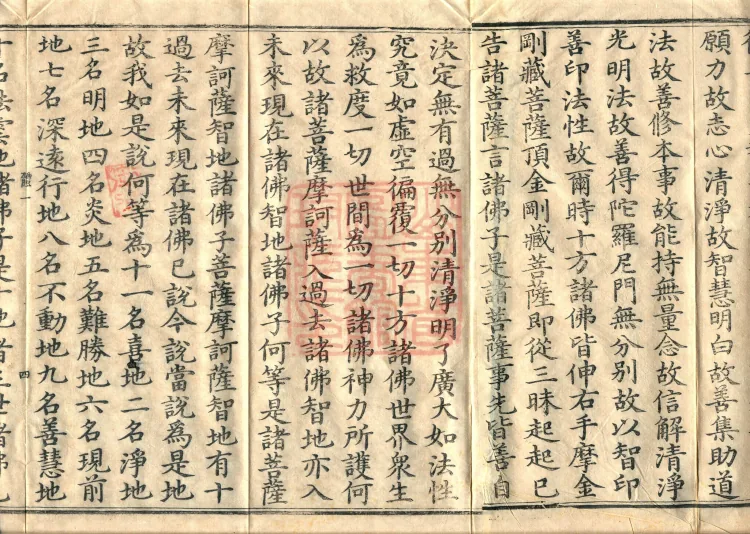 願力故志心清淨故智慧明白故善集助道
法故善修本事故能持無量念故信解清淨
光明法故善得陀羅尼門無分別故以智印
善印法性故爾時十方諸佛皆伸右手摩金
剛藏菩薩頂金剛藏菩薩即從三昧起起已
告諸菩薩言諸佛子是諸菩薩事先皆善自
決定無有過無分別清淨明了廣大如法性
究竟如虛空徧覆一切十方諸佛世界衆生
爲救度一切世間爲一切諸佛神力所護何
以故諸菩薩摩訶薩入過去諸佛智地亦入
未來現在諸佛智地諸佛子何等是諸菩薩
摩訶薩智地諸佛子菩薩摩訶薩智地有十
過去未來現在諸佛已說今說當說爲是地
故我如是說何等爲十一名喜地二名淨地
三名明地四名炎地五名難勝地六名現前
地七名深遠行地八名不動地九名善慧地
四
十名法雲地諸佛子是十地者三世諸佛已